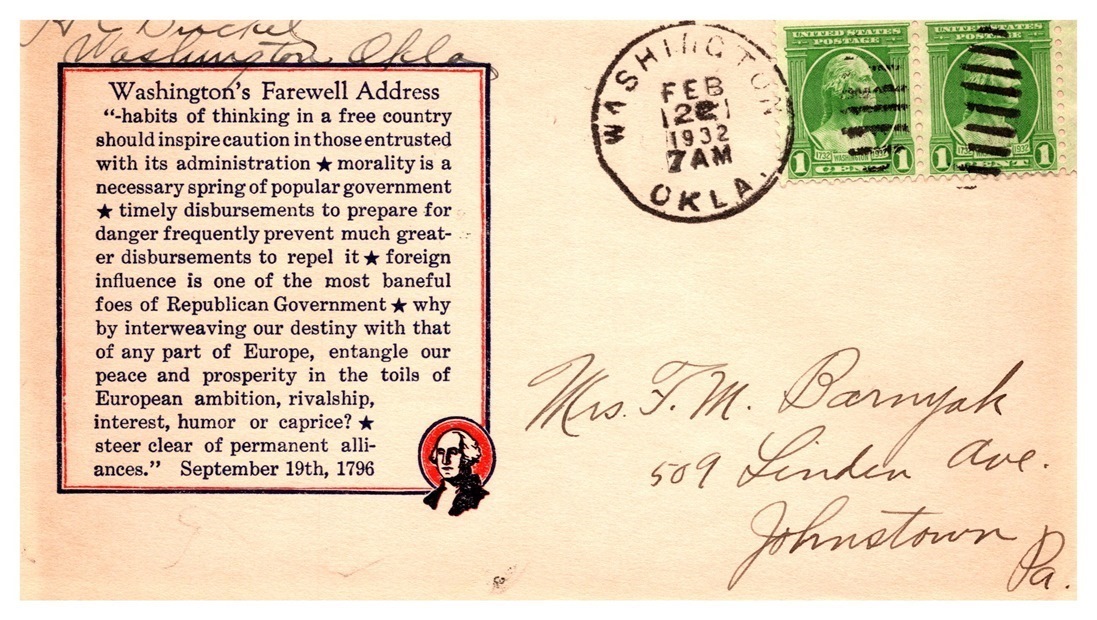 Washington Okla
Washington's Farewell Address
"-habits of thinking in a free country
should inspire caution in those entrusted
with its administration ★ morality is a
necessary spring of popular government
★ timely disbursements to prepare for
danger frequently prevent much great-
er disbursements to repel it ★ foreign
influence is one of the most baneful
foes of Republican Government ★ why
by interweaving our destiny with that
of any part of Europe, entangle our
peace and prosperity in the toils of
European ambition, rivalship,
interest, humor or caprice? ★
steer clear of permanent alli-
ances." September 19th, 1796
WASHINGTON
FEB
22
1932
7 AM
OKLA.
UNITED STATES
POSTAGE
1732 WASHINGTON 1932
1 CENT 1
UNITED STATES
POSTAGE
1732 1932
1 CENT 1
Mrs. F. M. Barnyak
509 Linden Ave.
Johnstown
Pa.